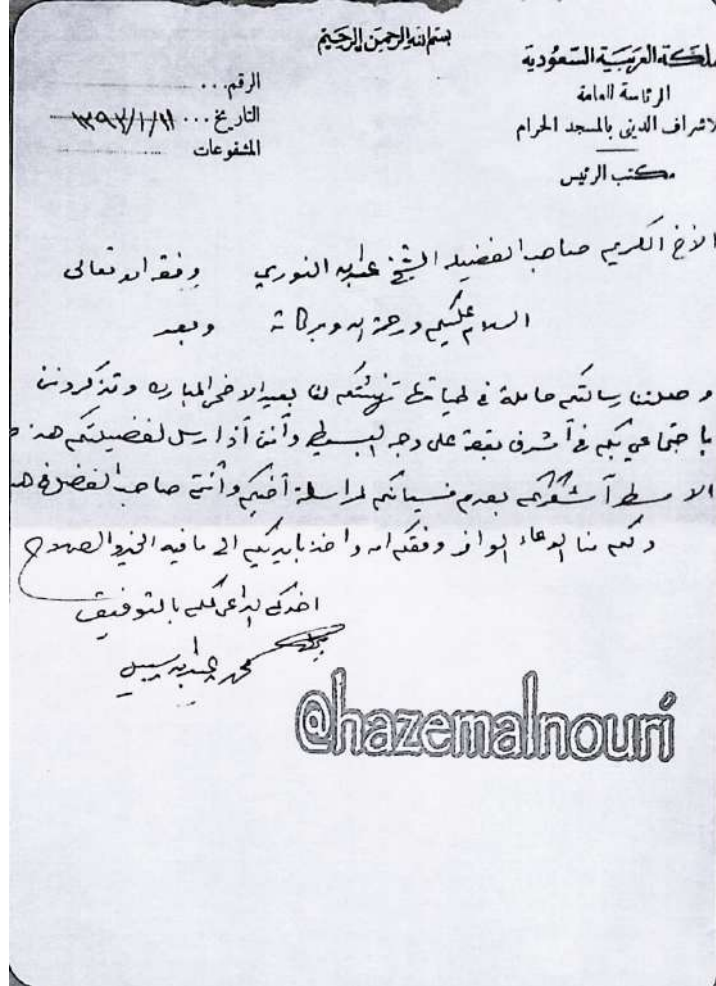 بسم الله الرحمن الرحيم
المملكة العربية السعودية
الرئاسة العامة
للاشراف الديني بالمسجد الحرام
مكتب الرئيس
الرقم...
التاريخ... ١٣٩٣/١/١١
المشفوعات
الأخ الكريم صاحب الفضيله الشيخ عبدالله النوري وفقه الله تعالى
السلام عليكم ورحمة الله وبركاته وبعد
وصلتنا رسالتكم حاملة في طياتها تهنئتكم لنا بعيد الاضحى المبارك وتذكرونن
باجتماعي بكم في أشرف بقعة على وجه البسيطة وأنني أذ ارسل لفضيلتكم هذه
الاسطر أشكركم بعدم نسيانكم لمراسلة أخيكم وأنتم صاحب الفضل في هذ
ولكم منا الدعاء الوافر وفقكم الله واخذ بايديكم الى ما فيه الخير والصلاح
اخوكم الداعي لكم بالتوفيق
محمد بن عبدالله بن سبيل
@hazemalnouri